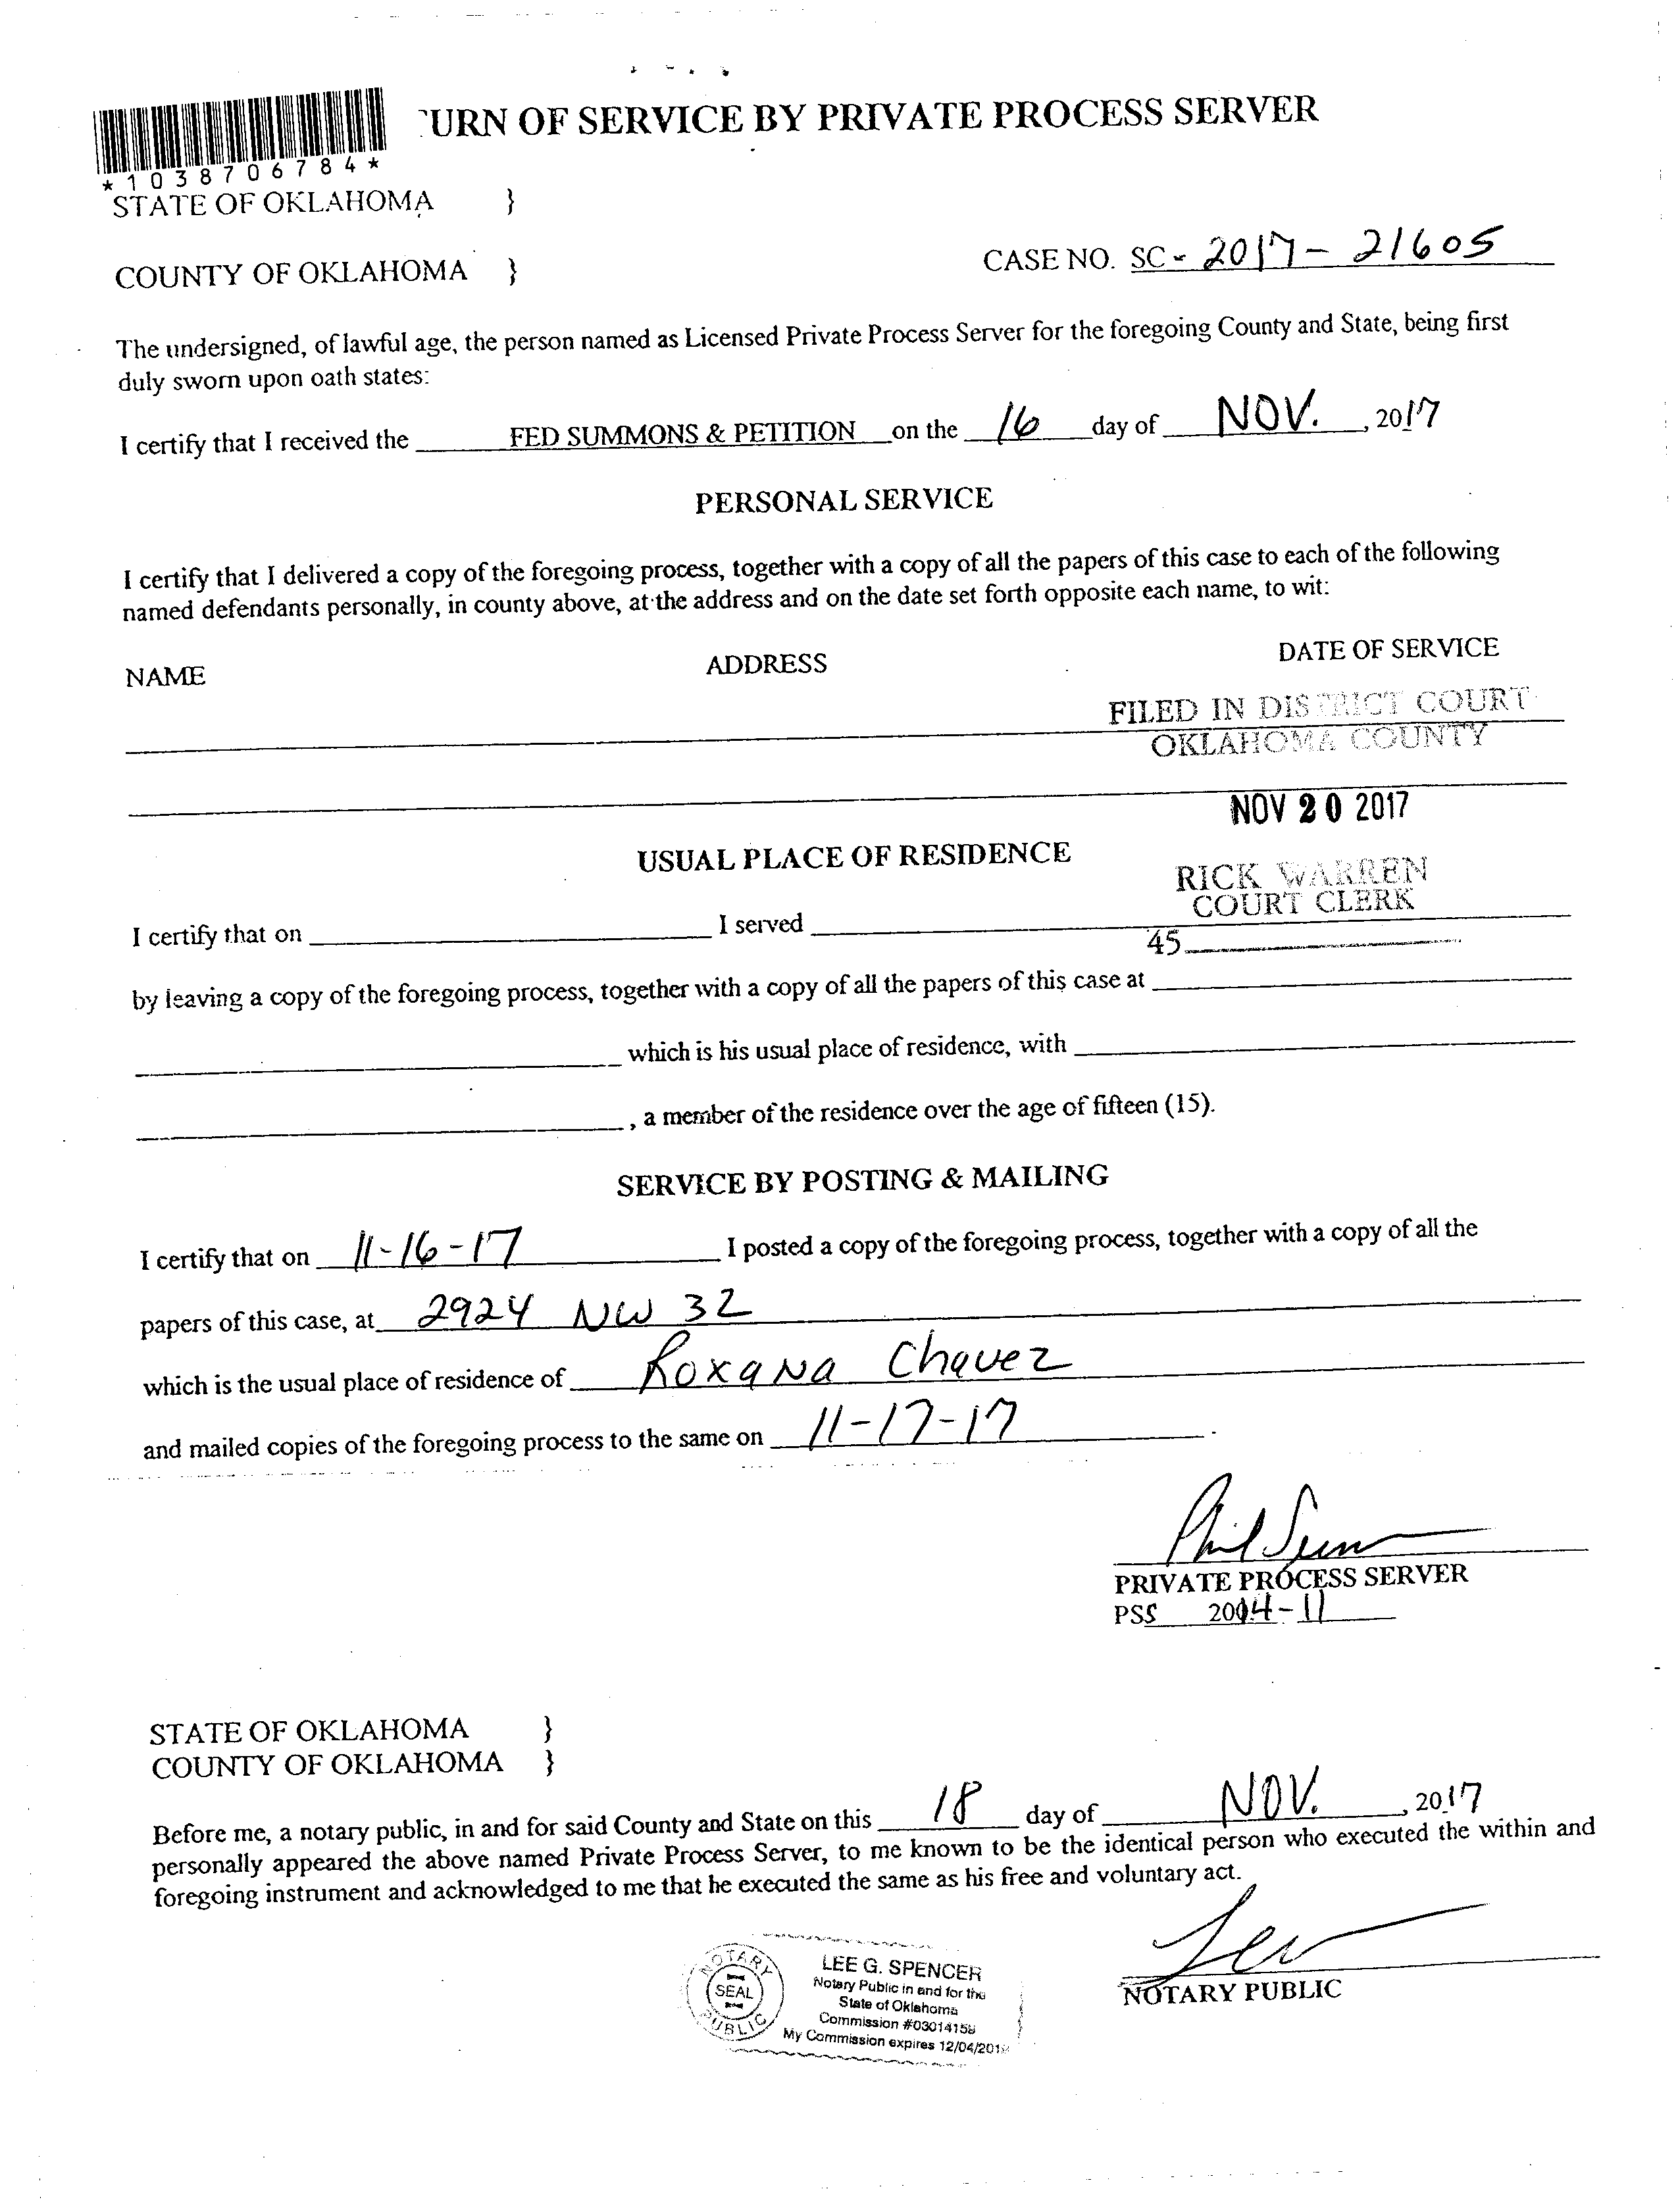 URN OF SERVICE BY PRIVATE PROCESS SERVER
*1038706784*
STATE OF OKLAHOMA }
COUNTY OF OKLAHOMA } CASE NO. SC- 2017- 21605
The undersigned, of lawful age, the person named as Licensed Private Process Server for the foregoing County and State, being first
duly sworn upon oath states:
I certify that I received the FED SUMMONS & PETITION on the 16 day of NOV. , 2017
PERSONAL SERVICE
I certify that I delivered a copy of the foregoing process, together with a copy of all the papers of this case to each of the following
named defendants personally, in county above, at the address and on the date set forth opposite each name, to wit:
NAME ADDRESS DATE OF SERVICE
FILED IN DISTRICT COURT
OKLAHOMA COUNTY
NOV 20 2017
USUAL PLACE OF RESIDENCE
RICK WARREN
COURT CLERK
I certify that on I served
45
by leaving a copy of the foregoing process, together with a copy of all the papers of this case at
which is his usual place of residence, with
, a member of the residence over the age of fifteen (15).
SERVICE BY POSTING & MAILING
I certify that on 11-16-17 I posted a copy of the foregoing process, together with a copy of all the
papers of this case, at 2924 NW 32
which is the usual place of residence of Roxana Chavez
and mailed copies of the foregoing process to the same on 11-17-17 .
PRIVATE PROCESS SERVER
PSS 2014-11
STATE OF OKLAHOMA }
COUNTY OF OKLAHOMA }
Before me, a notary public, in and for said County and State on this 18 day of NOV. , 2017
personally appeared the above named Private Process Server, to me known to be the identical person who executed the within and
foregoing instrument and acknowledged to me that he executed the same as his free and voluntary act.
NOTARY PUBLIC
SEAL
LEE G. SPENCER
Notary Public in and for the
State of Oklahoma
Commission #03014158
My Commission expires
NOTARY PUBLIC